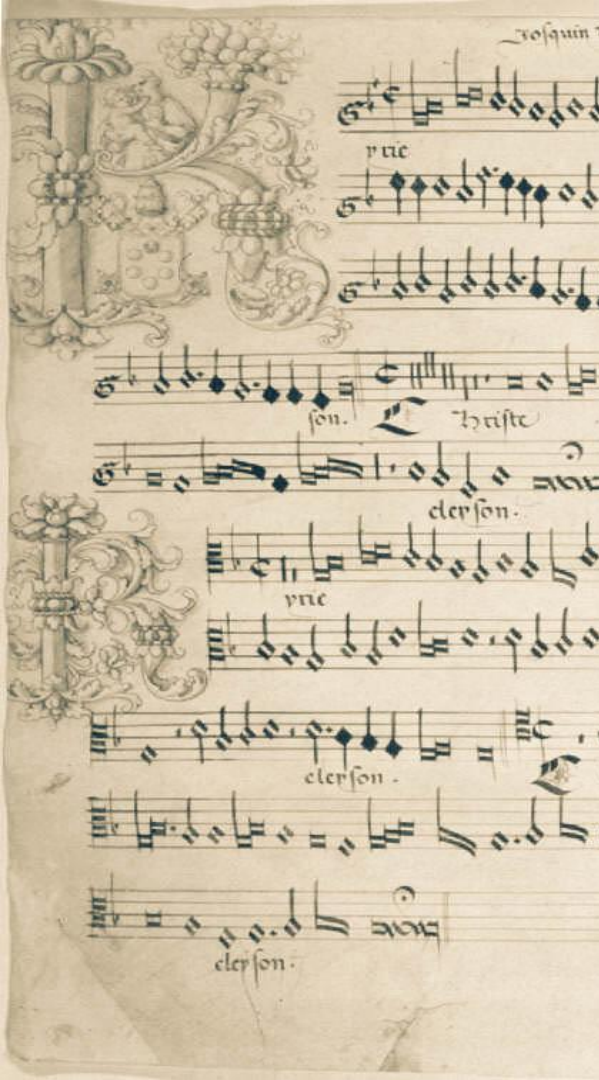 Josquin
yrie
son. Christe
eleyson.
yrie
eleyson.
eleyson.